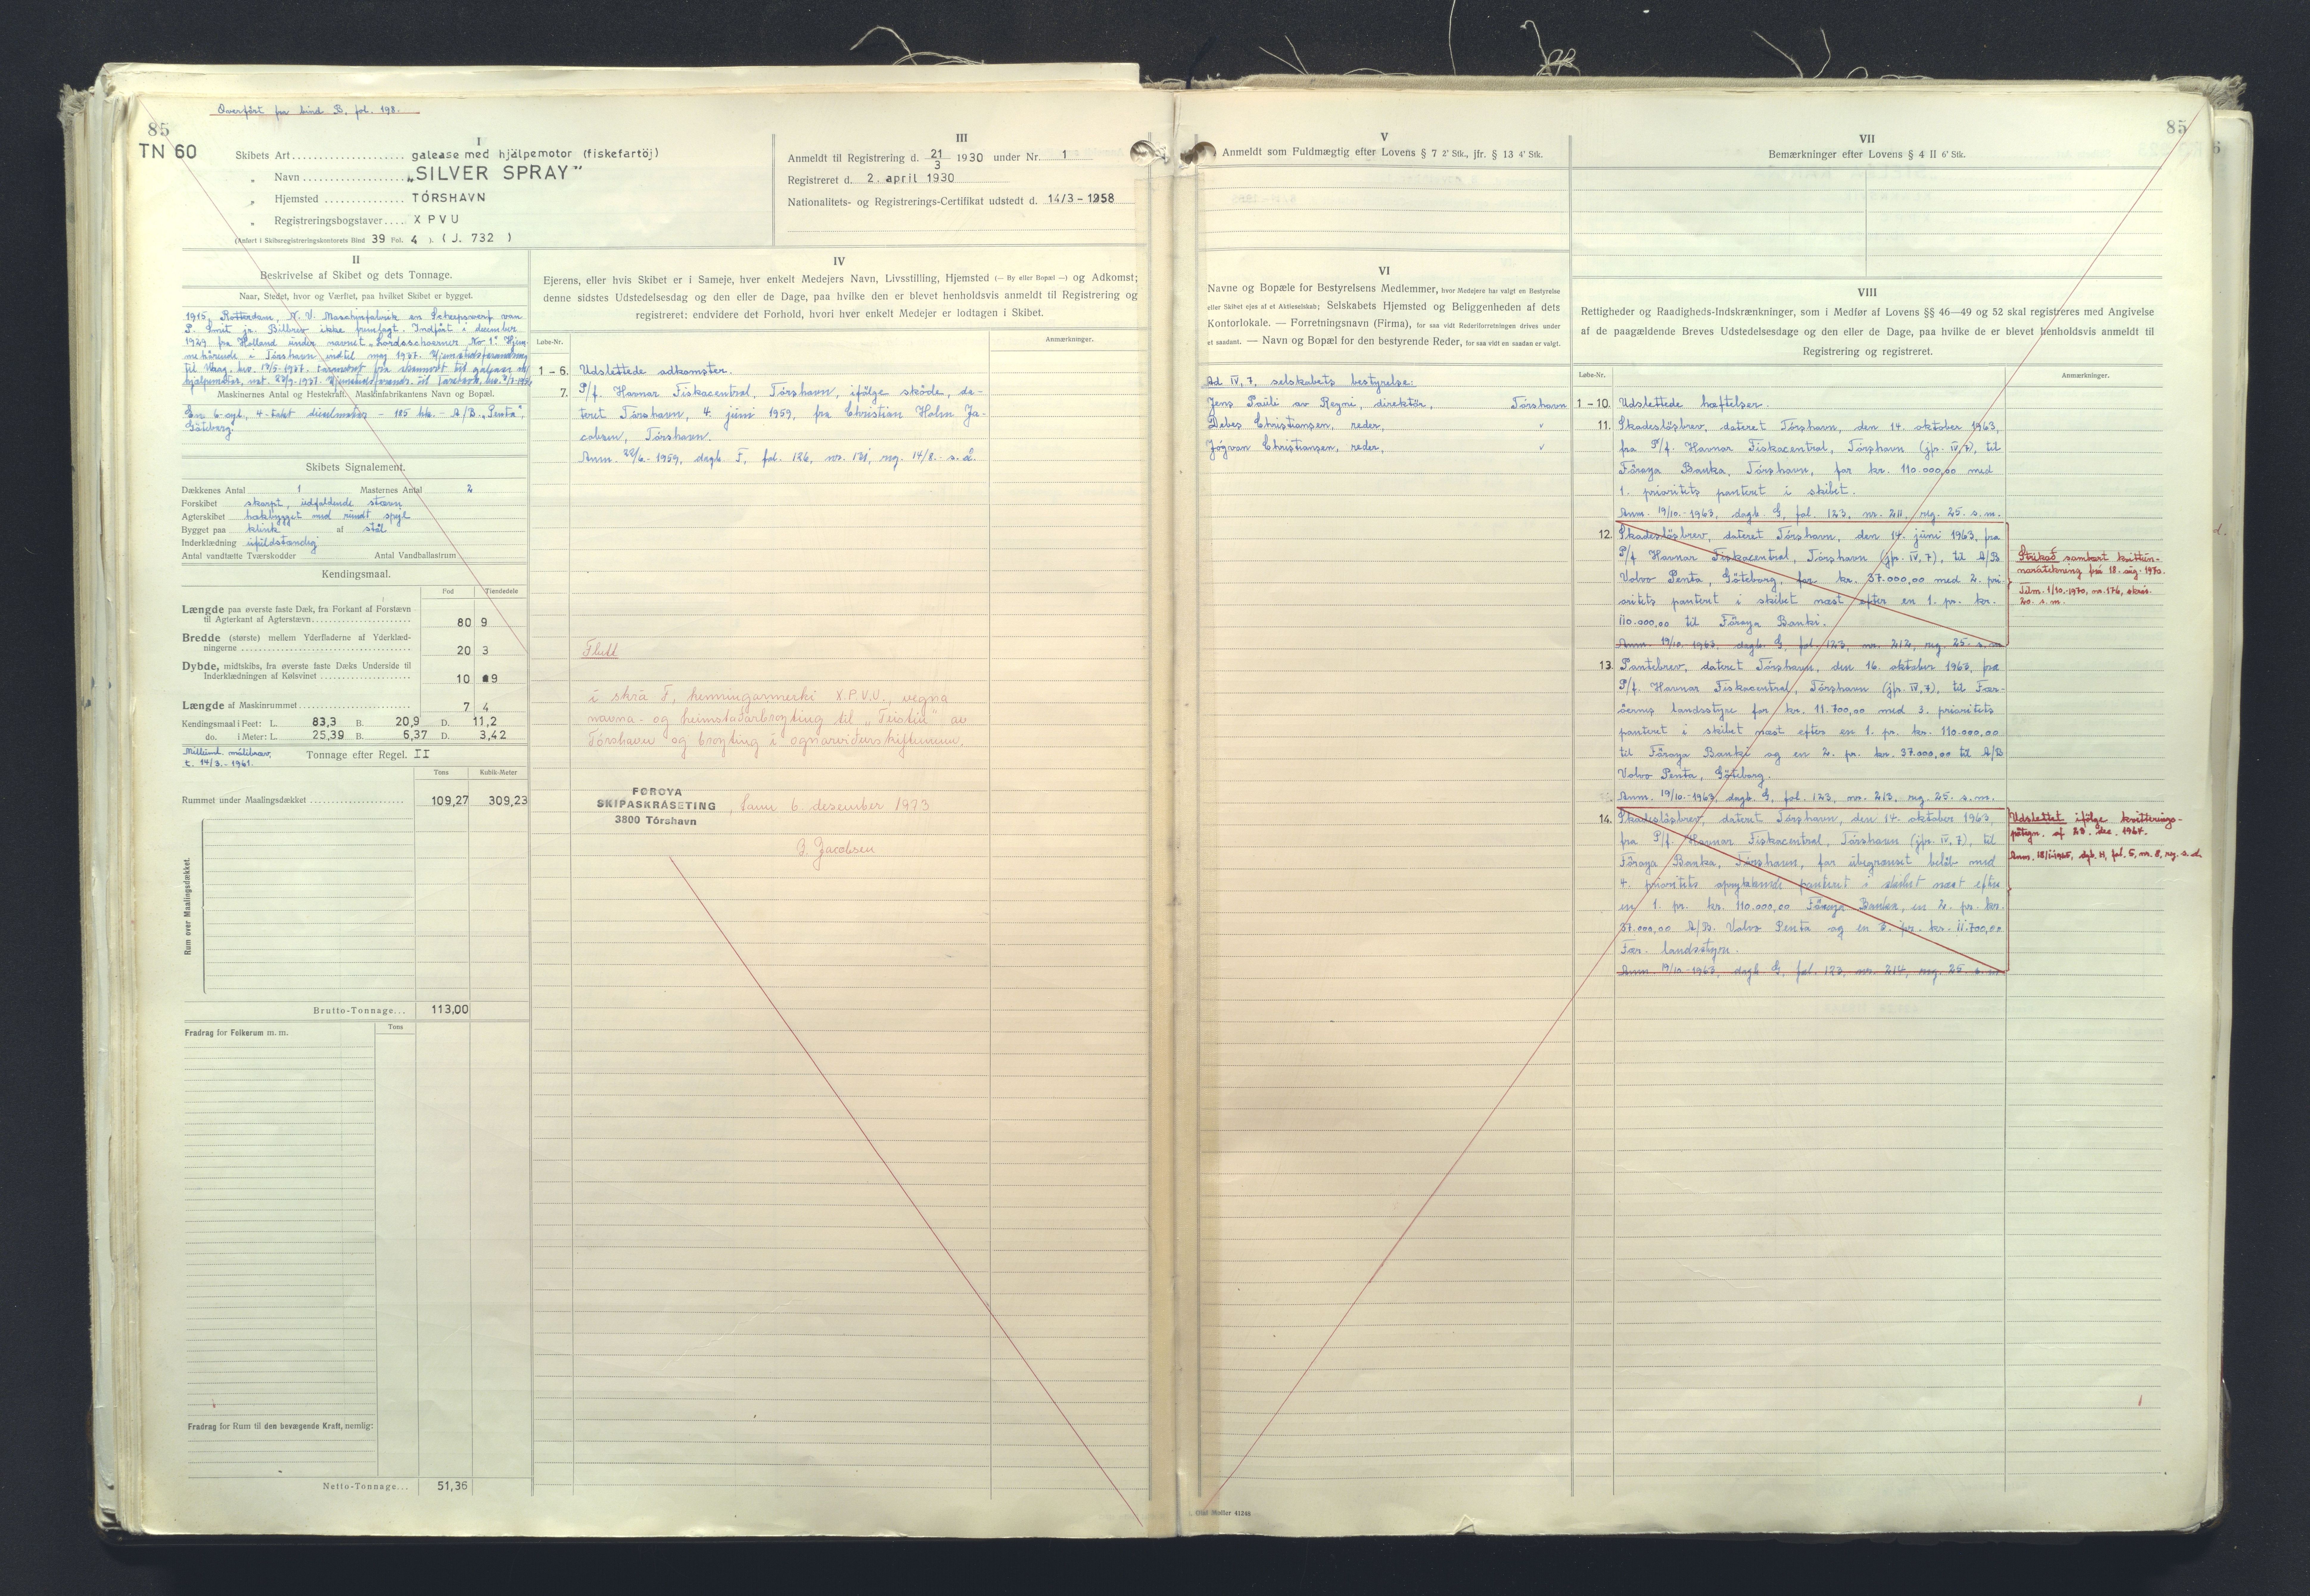 Overført fra bind B, fol. 198.
85
TN 60
I
Skibets Art galease med hjälpemotor (fiskefartöj)
„ Navn „SILVER SPRAY”
„ Hjemsted TÓRSHAVN
„ Registreringsbogstaver X P V U
(Anført i Skibsregistreringskontorets Bind 39 Fol. 4 ). ( J. 732 )
III
Anmeldt til Registrering d. 21/3 1930 under Nr. 1
Registreret d. 2. april 1930
Nationalitets- og Registrerings-Certifikat udstedt d. 14/3 - 1958
II
Beskrivelse af Skibet og dets Tonnage.
Naar, Stedet, hvor og Værftet, paa hvilket Skibet er bygget.
1915, Rotterdam, N. V. Maschinfabrik en Scheepswerf van
P. Smit jr. Bilbrev ikke fremlagt. Indført i december
1929 fra Holland under navnet „Loodsschoener No 1". Hjem-
mehørende i Tórshavn indtil maj 1937. Hjemstedsforandring
til Vaag, 1937.
hjälpemotor, 1937.
Maskinernes Antal og Hestekraft. Maskinfabrikantens Navn og Bopæl.
En 6-cyl., 4-takt dieselmotor - 185 hk. - A/B. „Penta",
Göteborg.
Skibets Signalement.
Dækkenes Antal 1 Masternes Antal 2
Forskibet skarpt, udfaldende stævn
Agterskibet hækbygget med rundt spejl
Bygget paa klink af stål
Inderklædning ufuldstændig
Antal vandtætte Tværskodder Antal Vandballastrum
Kendingsmaal.
Fod Tiendedele
Længde paa øverste faste Dæk, fra Forkant af Forstævn
til Agterkant af Agterstævn 80 9
Bredde (største) mellem Yderfladerne af Yderklæd-
ningerne 20 3
Dybde, midtskibs, fra øverste faste Dæks Underside til
Inderklædningen af Kølsvinet 10 9
Længde af Maskinrummet 7 4
Kendingsmaal i Feet: L. 83,3 B. 20,9 D. 11,2
do. i Meter: L. 25,39 B. 6,37 D. 3,42
målibrév.
t. 14/3.-1961.
Tonnage efter Regel. II
Tons Kubik-Meter
Rummet under Maalingsdækket 109,27 309,23
Rum over Maalingsdækket.
Brutto-Tonnage... 113,00
Fradrag for Folkerum m. m. Tons
Fradrag for Rum til den bevægende Kraft, nemlig:
Netto-Tonnage... 51,36
IV
Ejerens, eller hvis Skibet er i Sameje, hver enkelt Medejers Navn, Livsstilling, Hjemsted (— By eller Bopæl —) og Adkomst;
denne sidstes Udstedelsesdag og den eller de Dage, paa hvilke den er blevet henholdsvis anmeldt til Registrering og
registreret; endvidere det Forhold, hvori hver enkelt Medejer er lodtagen i Skibet.
Løbe-Nr. Anmærkninger.
1 - 6. Udslettede adkomster.
7. P/f. Havnar Fiskacentral, Tórshavn, ifölge sköde, da-
teret Tórshavn, 4. júni 1959, fra Christian Holm Ja-
cobsen, Tórshavn.
Anm. 22/6 - 1959, dagb. F, fol. 126, nr. 121, reg. 14/8. - s. å.
Flutt
í skrá F, kenningarmerki X.P.V.U., vegna
navna- og heimstaðarbroyting til „Teistin" av
Tórshavn og broyting í ognarviðurskiftunum.
FØROYA
SKIPASKRÁSETING
3800 Tórshavn
, hann 6. desember 1973
J. Jacobsen
V
Anmeldt som Fuldmægtig efter Lovens § 7 2' Stk., jfr. § 13 4' Stk.
VI
Navne og Bopæle for Bestyrelsens Medlemmer, hvor Medejere har valgt en Bestyrelse
eller Skibet ejes af et Aktieselskab; Selskabets Hjemsted og Beliggenheden af dets
Kontorlokale. — Forretningsnavn (Firma), for saa vidt Rederiforretningen drives under
et saadant. — Navn og Bopæl for den bestyrende Reder, for saa vidt en saadan er valgt.
Ad IV, 7. selskabets bestyrelse:
Jens Pauli av Reyni, direktör, Tórshavn
Debes Christiansen, reder, "
Jógvan Christiansen, reder, "
85
VII
Bemærkninger efter Lovens § 4 II 6' Stk.
VIII
Rettigheder og Raadigheds-Indskrænkninger, som i Medfør af Lovens §§ 46—49 og 52 skal registreres med Angivelse
af de paagældende Breves Udstedelsesdag og den eller de Dage, paa hvilke de er blevet henholdsvis anmeldt til
Registrering og registreret.
Løbe-Nr. Anmærkninger.
1 - 10. Udslettede hæftelser.
11. Skadeslösbrev, dateret Tórshavn, den 14. oktober 1963,
fra P/f. Havnar Fiskacentral, Tórshavn (jfr. IV, 7), til
Föroya Banka, Tórshavn, for kr. 110.000,00 med
1. prioritets panteret i skibet.
Anm. 19/10.-1963, dagb. G, fol. 123, nr. 211, reg. 25. s. m.
12. Skadeslösbrev, dateret Tórshavn, den 14. júni 1963, fra
P/f. Havnar Fiskacentral, Tórshavn (jfr. IV, 7), til A/B
Volvo Penta, Göteborg, for kr. 37.000,00 med 2. pri-
oritets panteret i skibet næst efter en 1. pr. kr.
110.000,00 til Föroya Banki.
Anm. 19/10.-1963, dagb. G, fol. 123, nr. 212, reg. 25. s. m.
Strikað sambært kvittun-
naráteknìng frá 18. aug. 1970.
Tilm. 1/10.-1970, nr. 176, skrás.
20. s. m.
13. Pantebrev, dateret Tórshavn, den 16. oktober 1963, fra
P/f. Havnar Fiskacentral, Tórshavn (jfr. IV, 7), til Fær-
öernes landsstyre for kr. 11.700,00 med 3. prioritets
panteret i skibet næst efter en 1. pr. kr. 110.000,00
til Föroya Banki og en 2. pr. kr. 37.000,00 til A/B
Volvo Penta, Göteborg.
Anm. 19/10.-1963, dagb. G, fol. 123, nr. 213, reg. 25. s. m.
14. Skadeslösbrev, dateret Tórshavn, den 14. oktober 1963,
fra P/f. Havnar Fiskacentral, Tórshavn (jfr. IV, 7), til
Föroya Banka, Tórshavn, for ubegrænset belöb med
4. prioritets oprykkende panteret i skibet næst efter
en 1. pr. kr. 110.000,00 Föroya Banka, en 2. pr. kr.
37.000,00 A/B. Volvo Penta og en 3. pr. kr. 11.700,00
Fær. landsstyre.
Anm. 19/10.-1963, dagb. G, fol. 123, nr. 214, reg. 25. s. m.
Udslettet ifölge kvitterings-
påtegn. af 23. dec. 1964.
Anm. 18/1-1965, dgb. H, fol. 5, nr. 8, reg. s. d.